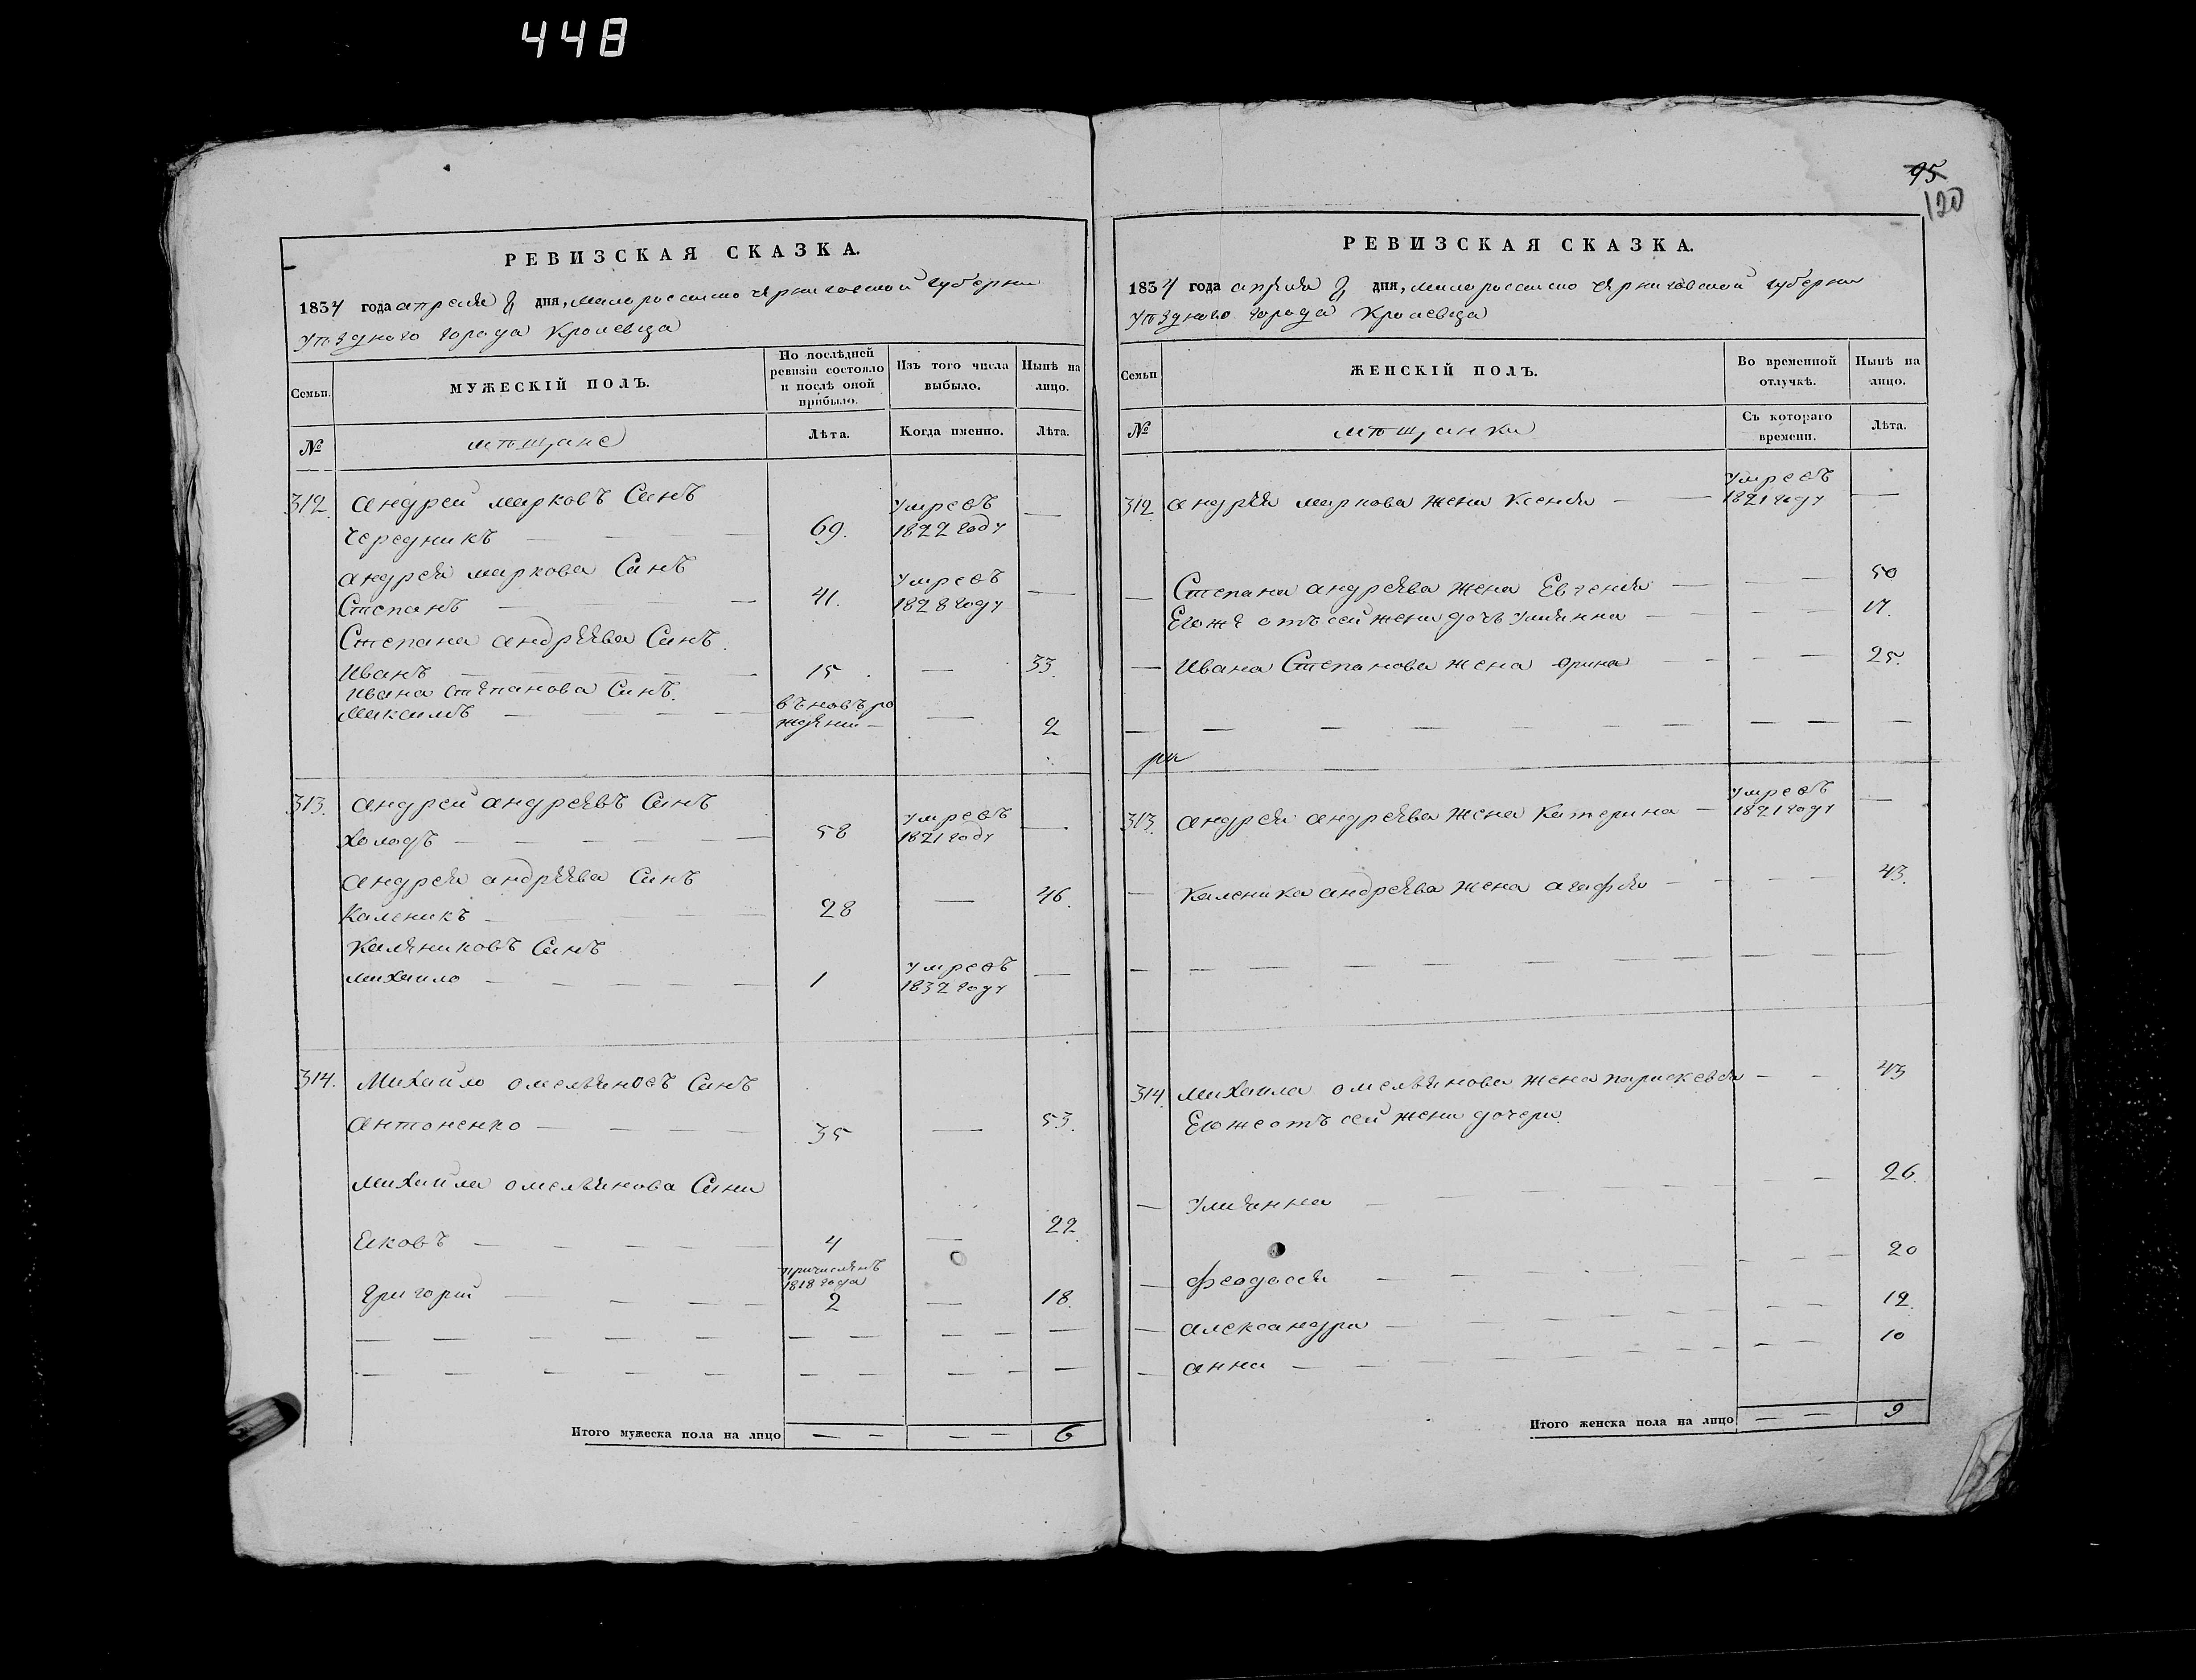 448
95
120
РЕВИЗСКАЯ СКАЗКА.
1834 года апреля дня, малороссийско черниговской губернии
уѣзднаго города Кролевца
Семьи.
МУЖЕСКІЙ ПОЛЪ.
По послѣдней ревизіи состояло и послѣ оной прибыло.
Изъ того числа выбыло.
Нынѣ на лицо.
№
мѣщане
Лѣта.
Когда именно.
Лѣта.
312. андрей марковъ Синъ
Чередникъ — 69. умревъ 1822 году —
андрея маркова Синъ
Степанъ — 41. умревъ 1828 году —
Степана андреева Синъ.
Иванъ — 15. — 33.
Ивана Степанова Синъ.
Максимъ — въновърождении — — 2
313. андрей андреевъ Синъ
Холодъ — 58 умревъ 1821 году —
андрея андреева Синъ
Каленикъ — 28 — 46.
Калениковъ Синъ
михаило — 1 умревъ 1832 году —
314. Михайло омельяновъ Синъ
антоненко — 35 — 53.
михайла омельянова Сини
Еяковъ — 4 — 22
Григорій — причисленъ 1818 года 2 — 18.
Итого мужеска пола на лицо — — 6
РЕВИЗСКАЯ СКАЗКА.
1834 года апреля дня, малороссийско черниговской губернии
уѣзднаго города Кролевца
Семьи
ЖЕНСКІЙ ПОЛЪ.
Во временной отлучкѣ.
Нынѣ на лицо.
№
мѣщанки
Съ котораго времени.
Лѣта.
312. андрея маркова жена Ксения — умревъ 1821 году —
— Степана андреева жена Евгения — 50
Егоже отъ сей жени дочъ улиянна — 17.
— Ивана Степанова жена орина — 25.
313. андрея андреева жена Катерина — умревъ 1821 году —
— Каленика андреева жена агафия — 43.
314. михаила омельянова жена параскевия — 43
Егоже отъ сей жени дочери.
— улиянна — 26.
— феодосия — 20
— александра — 12.
— анна — 10
Итого женска пола на лицо — — 9